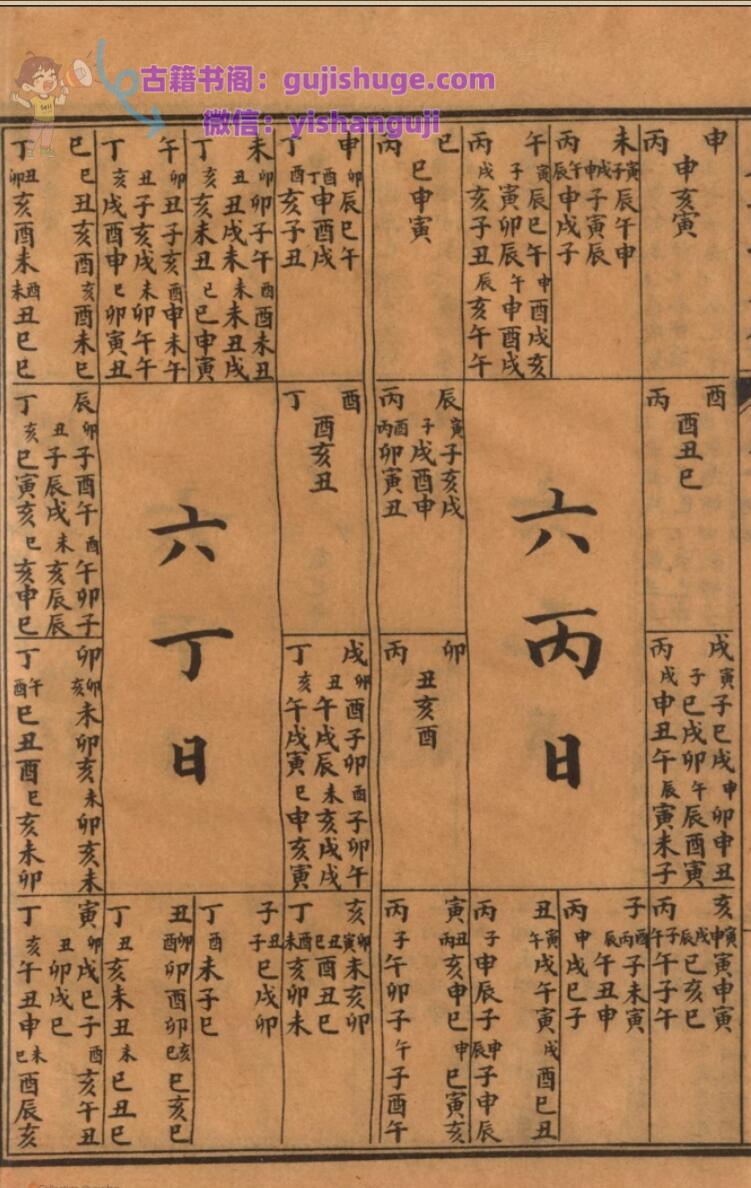 古籍书阁：gujishuge.com
微信：yishanguji
申丙
申亥寅
未丙
寅子戌申午辰
辰午申
子寅辰
申戌子
午丙
寅辰巳午申酉戌亥
子寅卯辰午申酉戌
戌亥子丑辰亥午午
巳丙
巳申寅
酉丙
酉丑巳
六丙日
辰丙
寅子亥戌
子戌酉申
丙酉卯寅丑
戌丙
寅子巳戌申卯申丑
子巳戌卯午辰酉寅
戌申丑午辰寅未子
卯丙
丑亥酉
亥丙
寅申戌辰子午
寅申寅
巳亥巳
午子午
子丙
酉丙辰
子未寅
午丑申
申戌巳子
丑丙
寅午戌午寅戌酉巳丑
子申辰子申辰子申辰
寅丙
丑丙亥申巳申巳寅亥
子午卯子午子酉午
申丁
卯辰巳午
酉丁申酉戌
酉亥子丑
未丁
卯卯子午酉酉未丑
丑丑戌未未未丑戌
亥亥未丑巳巳申寅
午丁
卯丑子亥酉申未午
丑子亥戌未卯午午
亥戌酉申巳卯寅丑
巳丁
巳丑亥酉亥酉未巳
丑卯亥酉未酉未丑巳巳
酉丁
酉亥丑
六丁日
辰丁
卯子酉午酉午卯子
丑子辰戌未亥辰辰
亥巳寅亥巳亥申巳
戌丁
卯酉子卯酉子卯午
丑午戌辰未亥戌戌
亥午戌寅巳申亥寅
卯丁
卯亥未卯亥未卯亥未
午酉巳丑酉巳亥未卯
亥丁
卯寅丑巳酉未
未亥卯
酉丑巳
亥卯未
子丁
丑子巳戌卯
酉未子巳
丑丁
卯酉卯酉卯亥巳巳亥巳
丑亥未丑未巳丑巳
寅丁
卯戌巳子酉亥午丑
丑卯戌巳
亥午丑申未巳酉辰亥